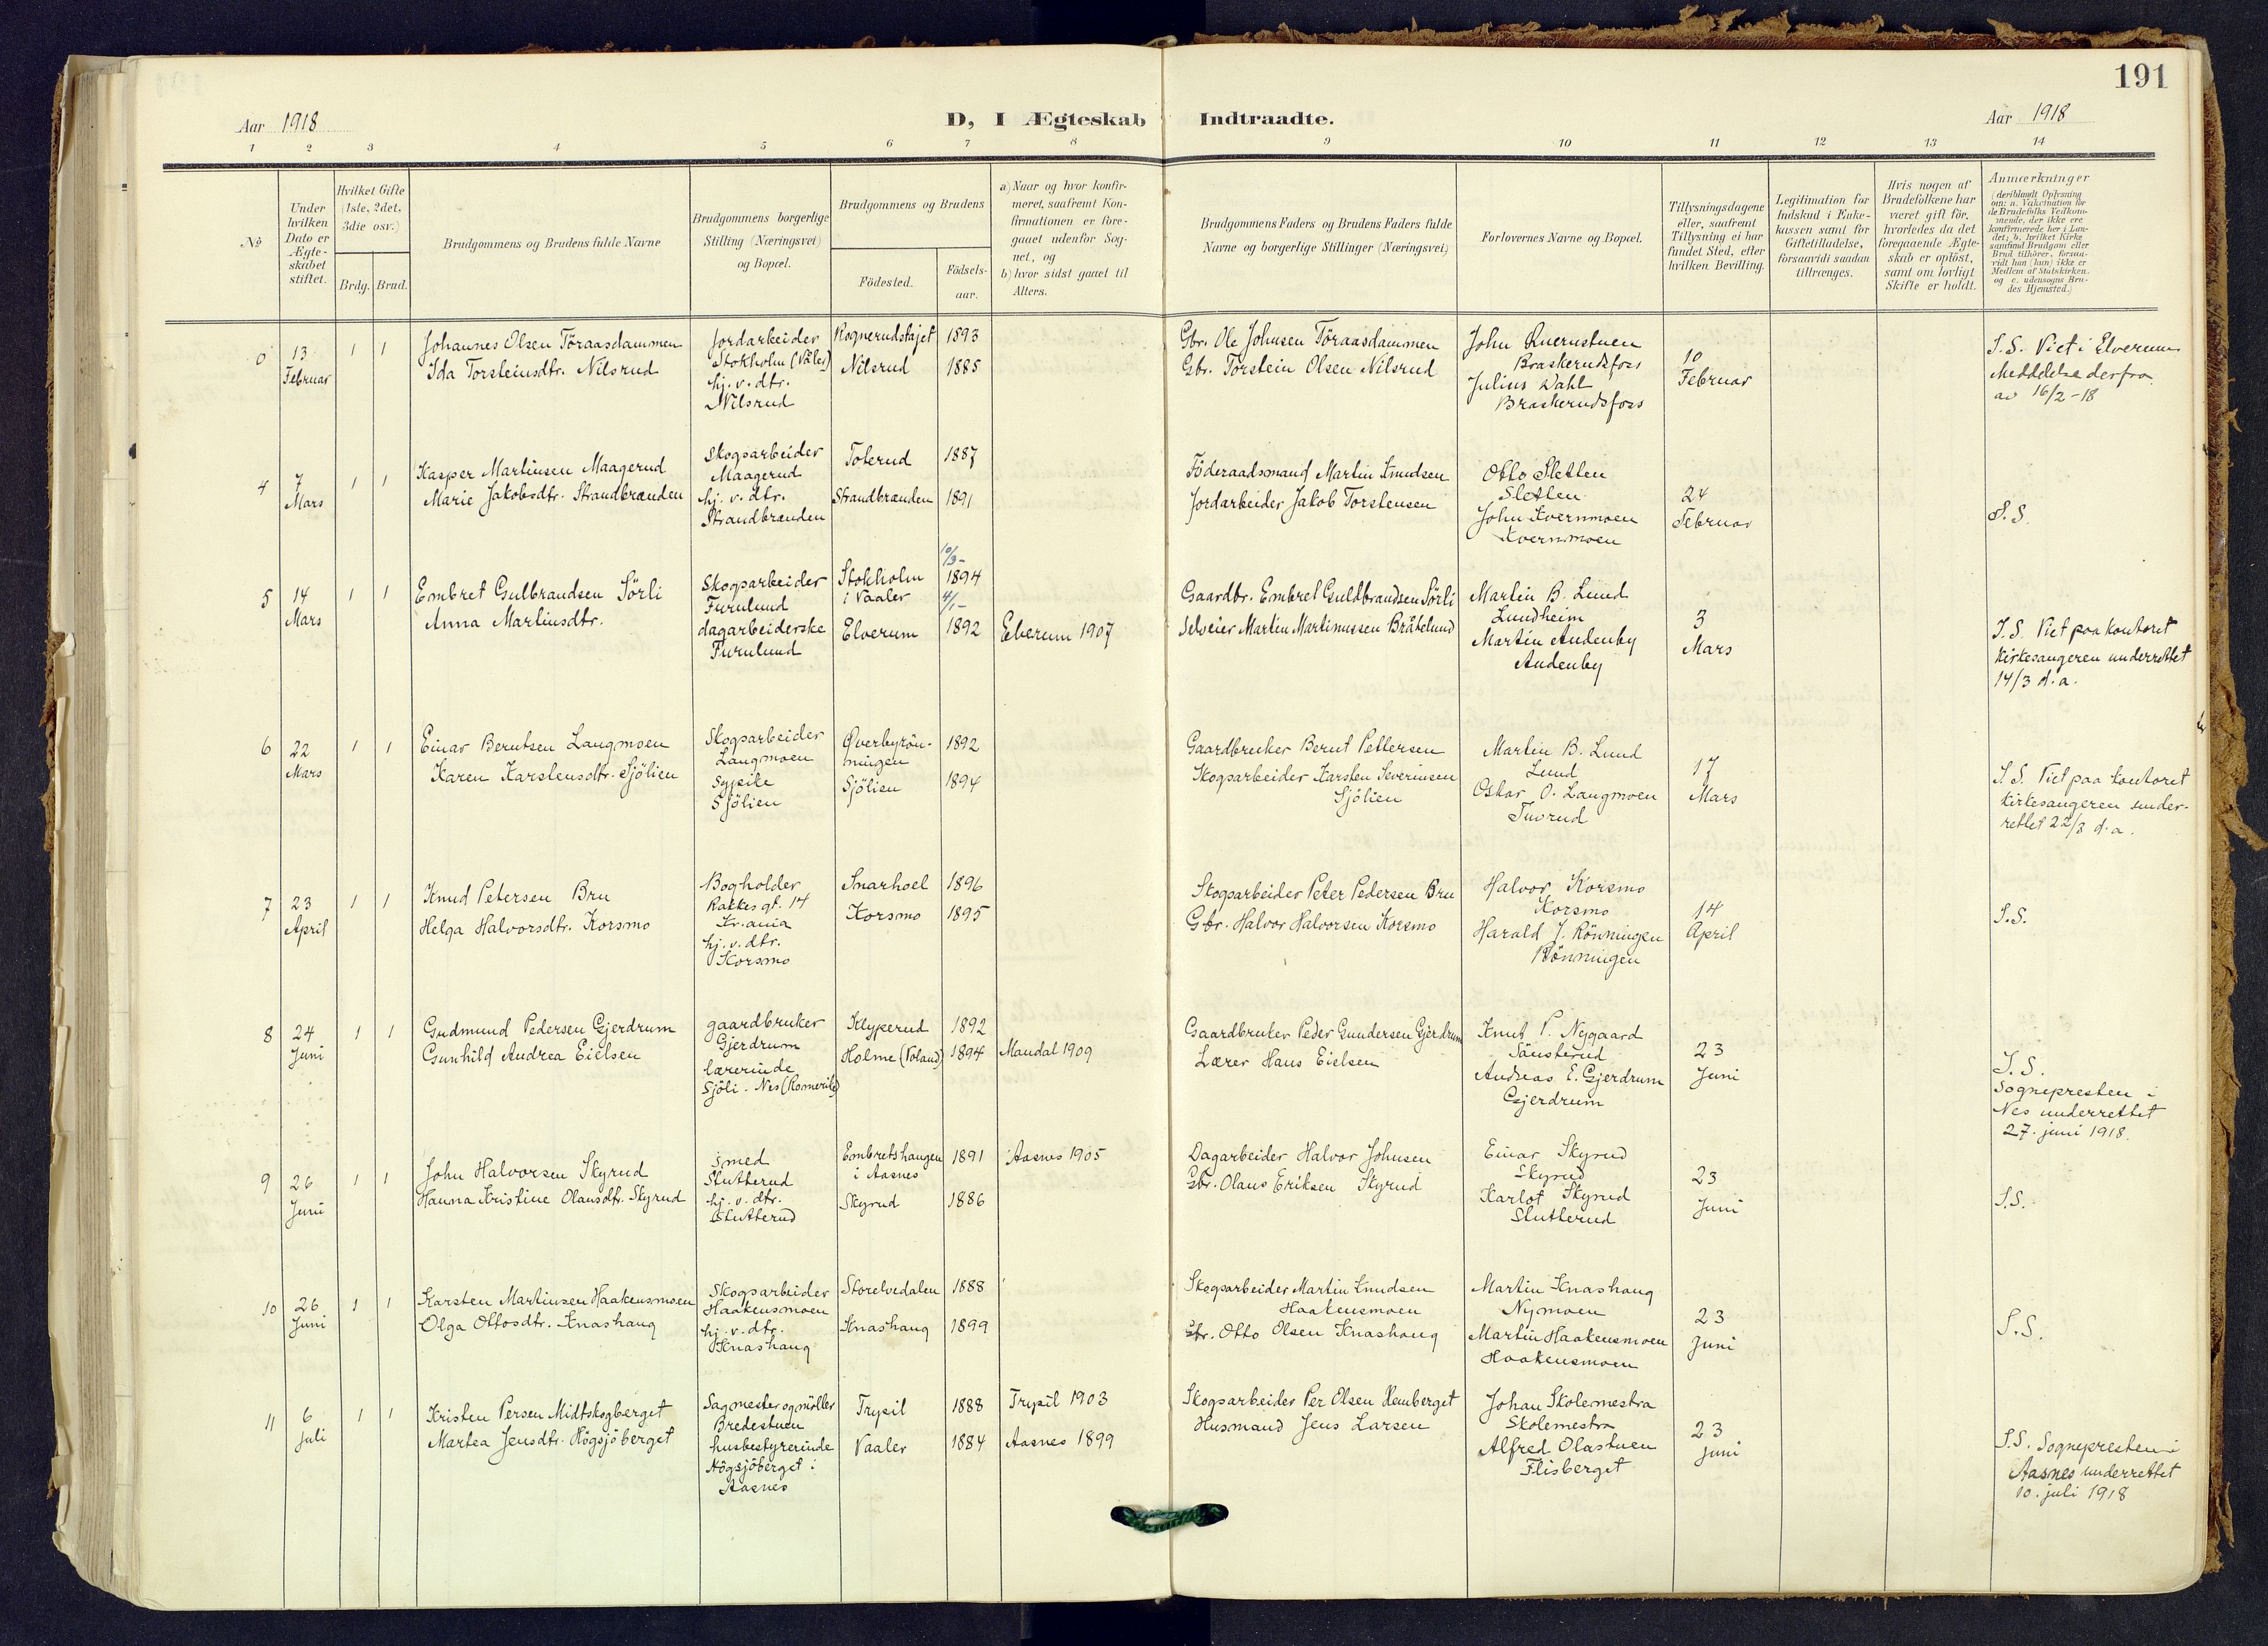 191
Aar 1918
D, I Ægteskab Indtraadte.
Aar 1918
1 2 3 4 5 6 7 8 9 10 11 12 13 14
No
Under
hvilken
Dato er
Ægte-
skabet
stiftet.
Hvilket Gifte
(1ste, 2det,
3die osv.)
Brdg. Brud.
Brudgommens og Brudens fulde Navne
Brudgommens borgerlige
Stilling (Næringsvei)
og Bopæl.
Brudgommens og Brudens
Födested.
Födsels-
aar.
a) Naar og hvor konfir-
meret, saafremt Kon-
firmationen er fore-
gaaet udenfor Sog-
net, og
b) hvor sidst gaaet til
Alters.
Brudgommens Faders og Brudens Faders fulde
Navne og borgerlige Stillinger (Næringsvei)
Forlovernes Navne og Bopæl.
Tillysningsdagene
eller, saafremt
Tillysning ei har
fundet Sted, efter
hvilken Bevilling.
Legitimation for
Indskud i Enke-
kassen samt for
Giftetilladelse,
forsaavidt saadan
tiltrænges.
Hvis nogen af
Brudefolkene har
været gift för,
hvorledes da det
foregaaende Ægte-
skab er oplöst,
samt om lovligt
Skifte er holdt.
Anmærkninger
(deriblandt Oplysning
om: a. Vakcination for
de Brudefolks Vedkom-
mende, der ikke ere
konfirmerede her i Lan-
det; b. hvilket Kirke
samfund Brudgom eller
Brud tilhörer, forsaa-
vidt han (hun) ikke er
Medlem af Statskirken,
og c. udensogns Bru-
des Hjemsted.)
0
13
Februar
1 1
Johannes Olsen Töraasdammen
Ida Torsteinsdtr. Nilsrud
Jordarbeider
Stokholm (Våler)
hj. v. dtr.
Nilsrud
Rognerudstøjet 1893
Nilsrud 1885
Gbr. Ole Johnsen Töraasdammen
Gbr. Torstein Olsen Nilsrud
John Quernstuen
Braskerudsfoss
Julius Wahl
Braskerudsfoss
10
Februar
S.S. Viet i Elverum
Meddelelse derfra
av 16/2-18
4
7
Mars
1 1
Kasper Martinsen Maagerud
Marie Jakobsdtr. Strandbrænden
Skogsarbeider
Maagerud
hj. v. dtr.
Strandbrænden
Toterud 1887
Strandbrænden 1891
Föderaadsmand Martin Knudsen
Jordarbeider Jakob Torstensen
Otto Sletten
Sletten
John Kvernmoen
Kvernmoen
24
Februar
S.S.
5
14
Mars
1 1
Embret Gulbrandsen Sörli
Anna Martinsdtr.
Skogsarbeider
Furulund
dagarbeiderske
Furulund
Stokholm
i Vaaler
10/3-
1894
Elverum
4/1-
1892
Elverum 1907
Gaardbr. Embret Guldbrandsen Sörli
Selveier Martin Martinussen Bråtelund
Martin B. Lund
Lundheim
Martin Audenby
Audenby
3
Mars
S.S. Viet paa kontoret
Kirkesangeren underrettet
14/3 d.a.
6
22
Mars
1 1
Einar Berntsen Langmoen
Karen Karstensdtr. Sjölien
Skogsarbeider
Langmoen
Sypike
Sjölien
Øverbyrön-
ningen
1892
Sjölien 1894
Gaardbruker Bernt Pettersen
Skogsarbeider Karsten Severinsen
Sjölien
Martin B. Lund
Lund
Oskar O. Langmoen
Tuvrud
17
Mars
S.S. Viet paa kontoret
kirkesangeren under-
rettet 22/3 d.a.
7
23
April
1 1
Knud Petersen Bru
Helga Halvorsdtr. Korsmo
Bogholder
Rakkes gt. 14
Kr.ania
hj. v. dtr.
Korsmo
Snarhoel 1896
Korsmo 1895
Skogsarbeider Peter Pedersen Bru
Gbr. Halvor Halvorsen Korsmo
Halvor Korsmo
Korsmo
Harald J. Rönningen
Rönningen
14
April
S.S.
8
24
Juni
1 1
Gudmund Pedersen Gjerdrum
Gunhild Andrea Eielsen
gaardbruker
Gjerdrum
lærerinde
Sjöli. Nes (Romerike)
Klyperud 1892
Holme (Voland) 1894
Mandal 1909
Gaardbruker Peder Gundersen Gjerdrum
Lærer Hans Eielsen
Knut P. Nygaard
Sånsterud
Andreas E. Gjerdrum
Gjerdrum
23
Juni
S.S.
Sognepresten i
Nes underrettet
27. juni 1918.
9
26
Juni
1 1
John Halvorsen Skyrud
Hanna Kristine Olausdtr. Skyrud
Smed
Slutterud
hj. v. dtr.
Slutterud
Embretshaugen
i Aasnes
1891
Skyrud 1886
Aasnes 1905
Dagarbeider Halvor Johnsen
Gbr. Olaus Eriksen Skyrud
Einar Skyrud
Skyrud
Karlot Skyrud
Slutterud
23
Juni
S.S.
10
26
Juni
1 1
Karsten Martinsen Haakensmoen
Olga Ottosdtr. Knashaug
Skogsarbeider
Haakensmoen
hj. v. dtr.
Knashaug
Storelvedalen 1888
Knashaug 1899
Skogsarbeider Martin Knudsen
Haakensmoen
Gbr. Otto Olsen Knashaug
Martin Knashaug
Nymoen
Martin Haakensmoen
Haakensmoen
23
Juni
S.S.
11
6
juli
1 1
Kristen Persen Midtskogberget
Martea Jensdtr. Högsjöberget
Sagmester og möller
Bredestuen
husbestyrerinde
Högsjöberget i
Aasnes
Trysil 1888
Vaaler 1884
Trysil 1903
Aasnes 1899
Skogsarbeider Per Olsen Hemberget
Husmand Jens Larsen
Johan Skolemestra
Skolemestra
Alfred Olastuen
Flisberget
23
juni
S.S. Sognepresten i
Aasnes underrettet
10. juli 1918